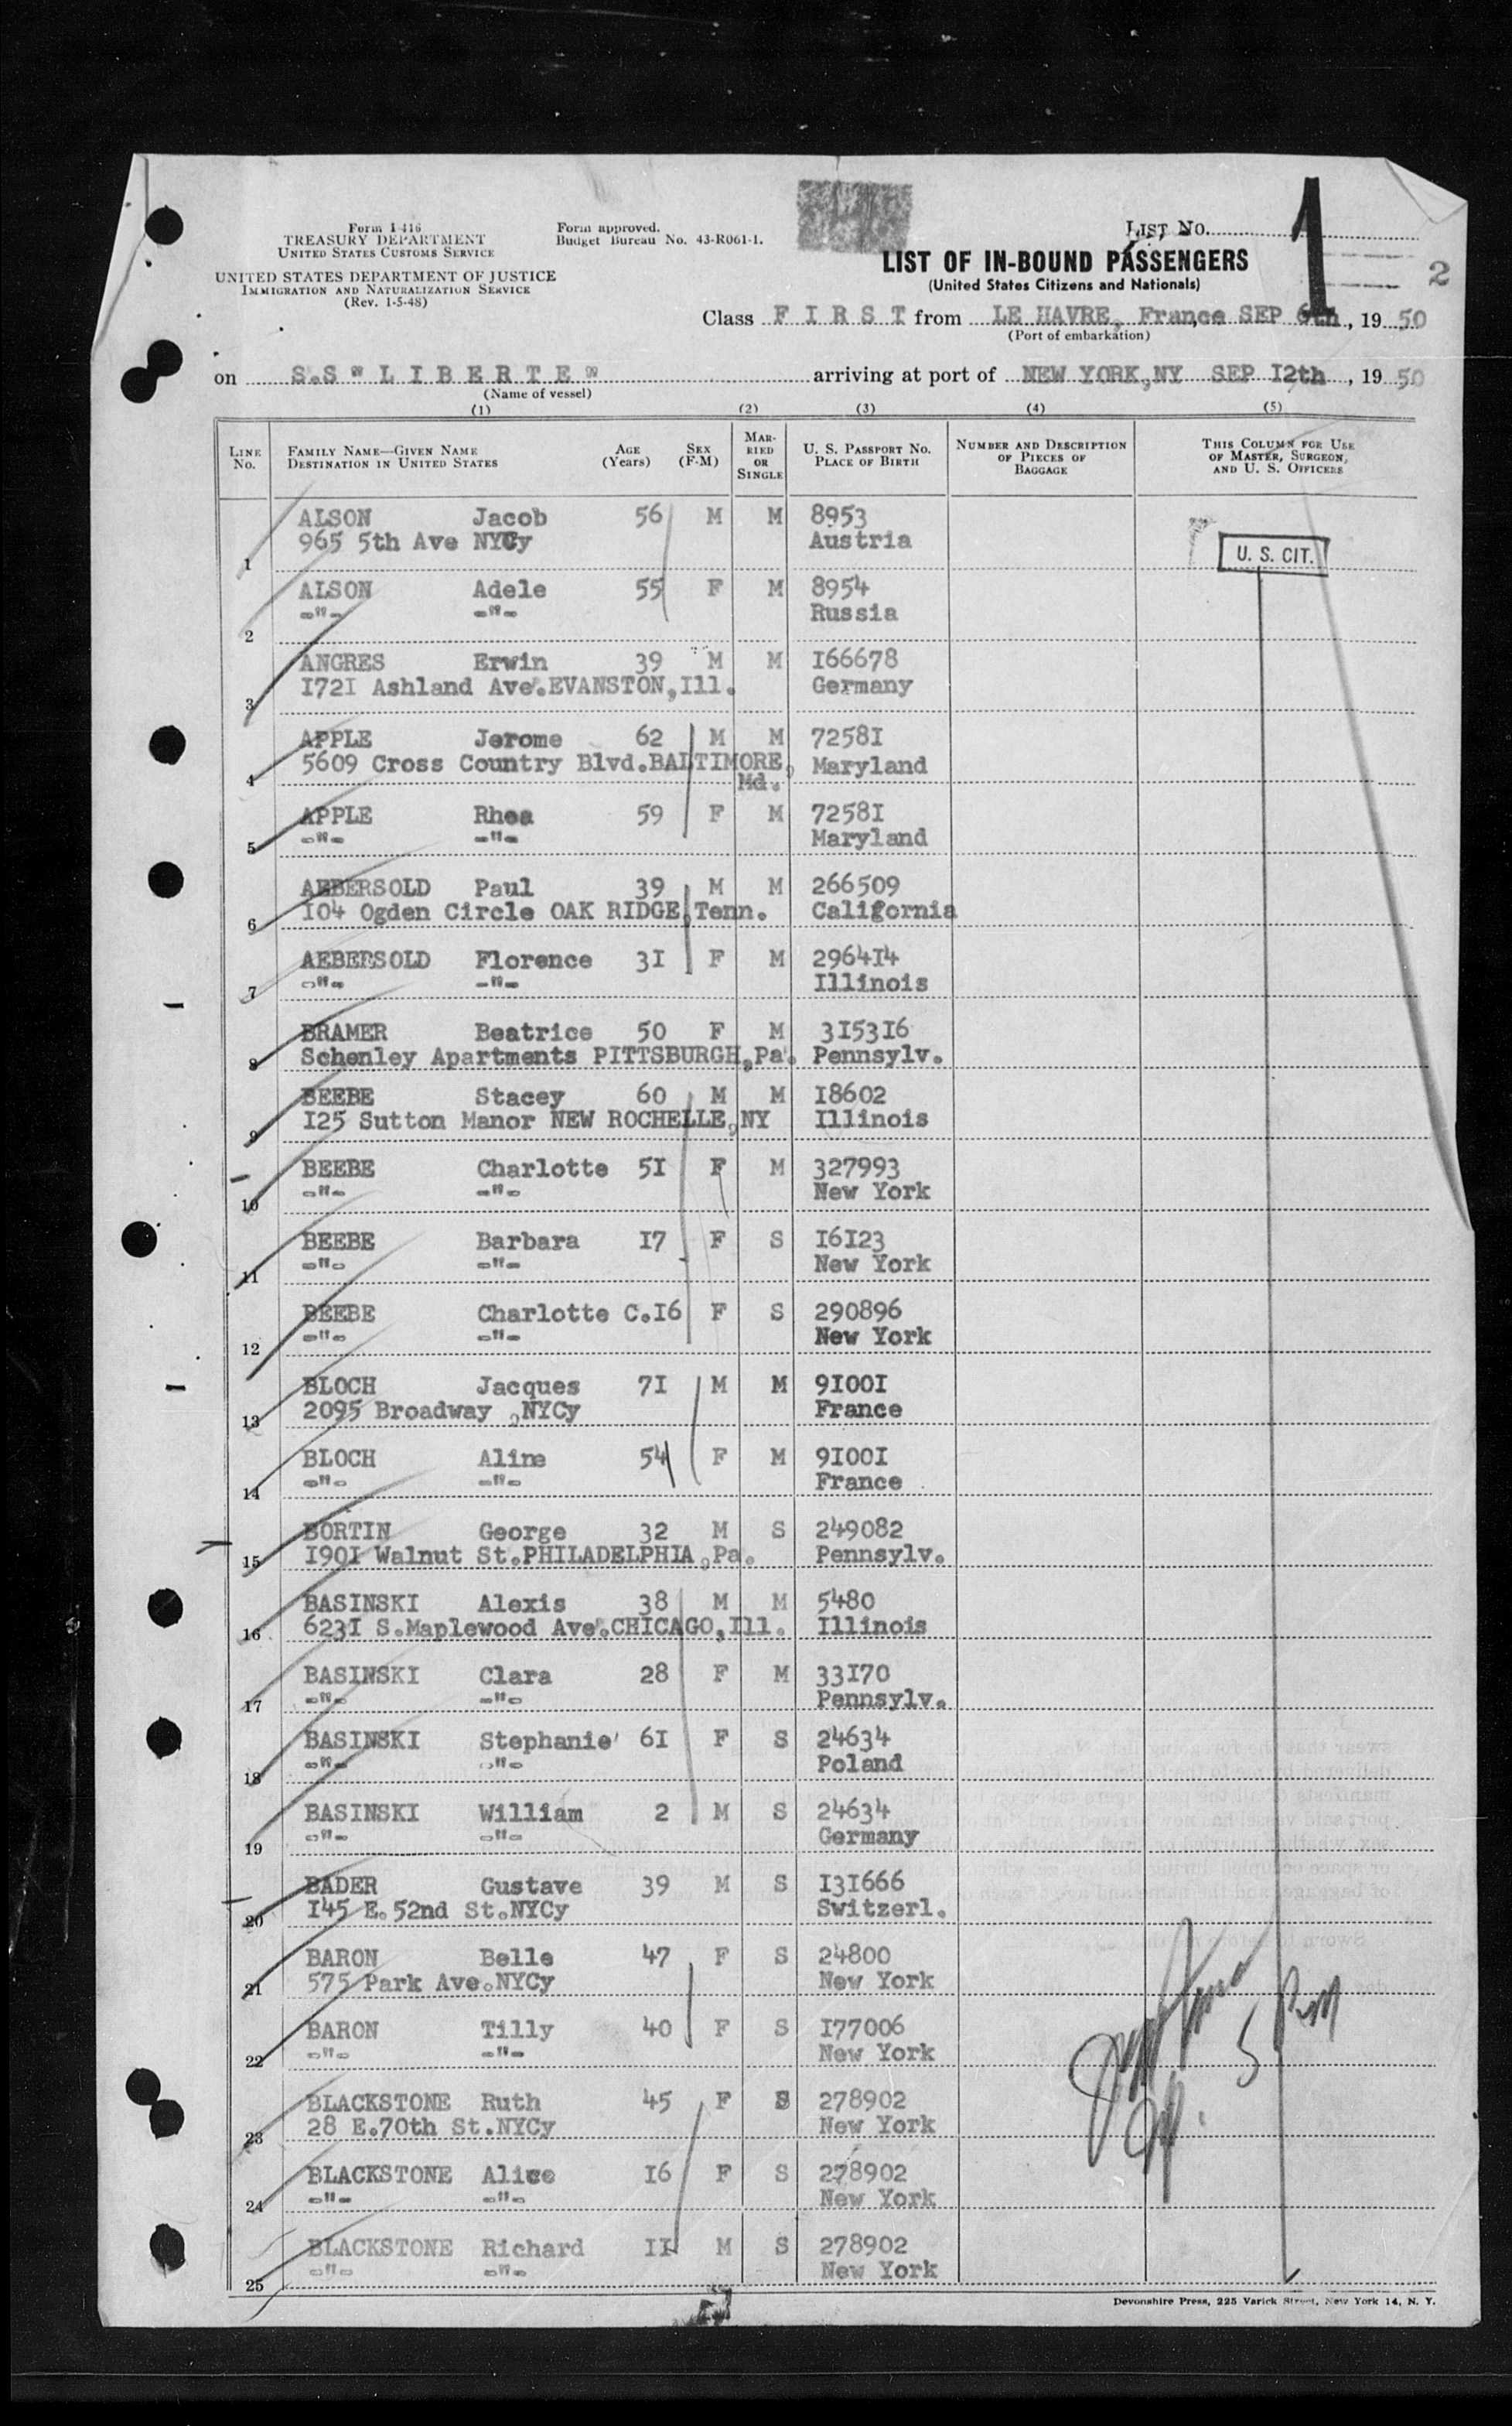 Form I-416
TREASURY DEPARTMENT
UNITED STATES CUSTOMS SERVICE
UNITED STATES DEPARTMENT OF JUSTICE
IMMIGRATION AND NATURALIZATION SERVICE
(Rev. 1-5-48)
Form approved.
Budget Bureau No. 43-R061-1.
LIST NO. 1
2
LIST OF IN-BOUND PASSENGERS
(United States Citizens and Nationals)
Class F I R S T from LE HAVRE, France SEP 6th, 19 50
(Port of embarkation)
on S.S " L I B E R T E " arriving at port of NEW YORK,NY SEP I2th, 19 50
(Name of vessel)
(1) (2) (3) (4) (5)
LINE NO. FAMILY NAME—GIVEN NAME DESTINATION IN UNITED STATES AGE (Years) SEX (F-M) MARRIED OR SINGLE U. S. PASSPORT NO. PLACE OF BIRTH NUMBER AND DESCRIPTION OF PIECES OF BAGGAGE THIS COLUMN FOR USE OF MASTER, SURGEON, AND U. S. OFFICERS
ALSON Jacob 56 M M 8953
1 965 5th Ave NYCy Austria U. S. CIT.
ALSON Adele 55 F M 8954
2 -"- -"- Russia
ANGRES Erwin 39 M M I66678
3 I72I Ashland Ave.EVANSTON,Ill. Germany
APPLE Jerome 62 M M 7258I
4 5609 Cross Country Blvd.BALTIMORE, Md. Maryland
APPLE Rhea 59 F M 7258I
5 -"- -"- Maryland
AEBERSOLD Paul 39 M M 266509
6 I04 Ogden Circle OAK RIDGE,Tenn. California
AEBERSOLD Florence 3I F M 2964I4
7 -"- -"- Illinois
BRAMER Beatrice 50 F M 3I53I6
8 Schenley Apartments PITTSBURGH,Pa. Pennsylv.
BEEBE Stacey 60 M M I8602
9 I25 Sutton Manor NEW ROCHELLE,NY Illinois
BEEBE Charlotte 5I F M 327993
10 -"- -"- New York
BEEBE Barbara I7 F S I6I23
11 -"- -"- New York
BEEBE Charlotte C.I6 F S 290896
12 -"- -"- New York
BLOCH Jacques 7I M M 9I00I
13 2095 Broadway ,NYCy France
BLOCH Aline 54 F M 9I00I
14 -"- -"- France
BORTIN George 32 M S 249082
15 I90I Walnut St.PHILADELPHIA,Pa. Pennsylv.
BASINSKI Alexis 38 M M 5480
16 623I S.Maplewood Ave.CHICAGO,Ill. Illinois
BASINSKI Clara 28 F M 33I70
17 -"- -"- Pennsylv.
BASINSKI Stephanie 6I F S 24634
18 -"- -"- Poland
BASINSKI William 2 M S 24634
19 -"- -"- Germany
BADER Gustave 39 M S I3I666
20 I45 E.52nd St.NYCy Switzerl.
BARON Belle 47 F S 24800
21 575 Park Ave.NYCy New York
BARON Tilly 40 F S I77006
22 -"- -"- New York
BLACKSTONE Ruth 45 F S 278902
23 28 E.70th St.NYCy New York
BLACKSTONE Alice I6 F S 278902
24 -"- -"- New York
BLACKSTONE Richard II M S 278902
25 -"- -"- New York
Devonshire Press, 225 Varick Street, New York 14, N. Y.